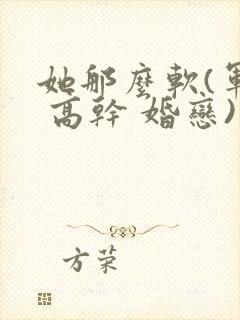 她那麼軟(軍
高幹 婚戀)
方荣